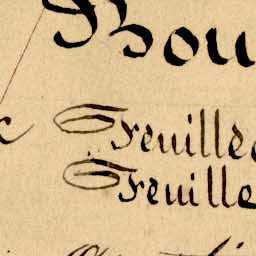 Bou
Feuille
Feuille